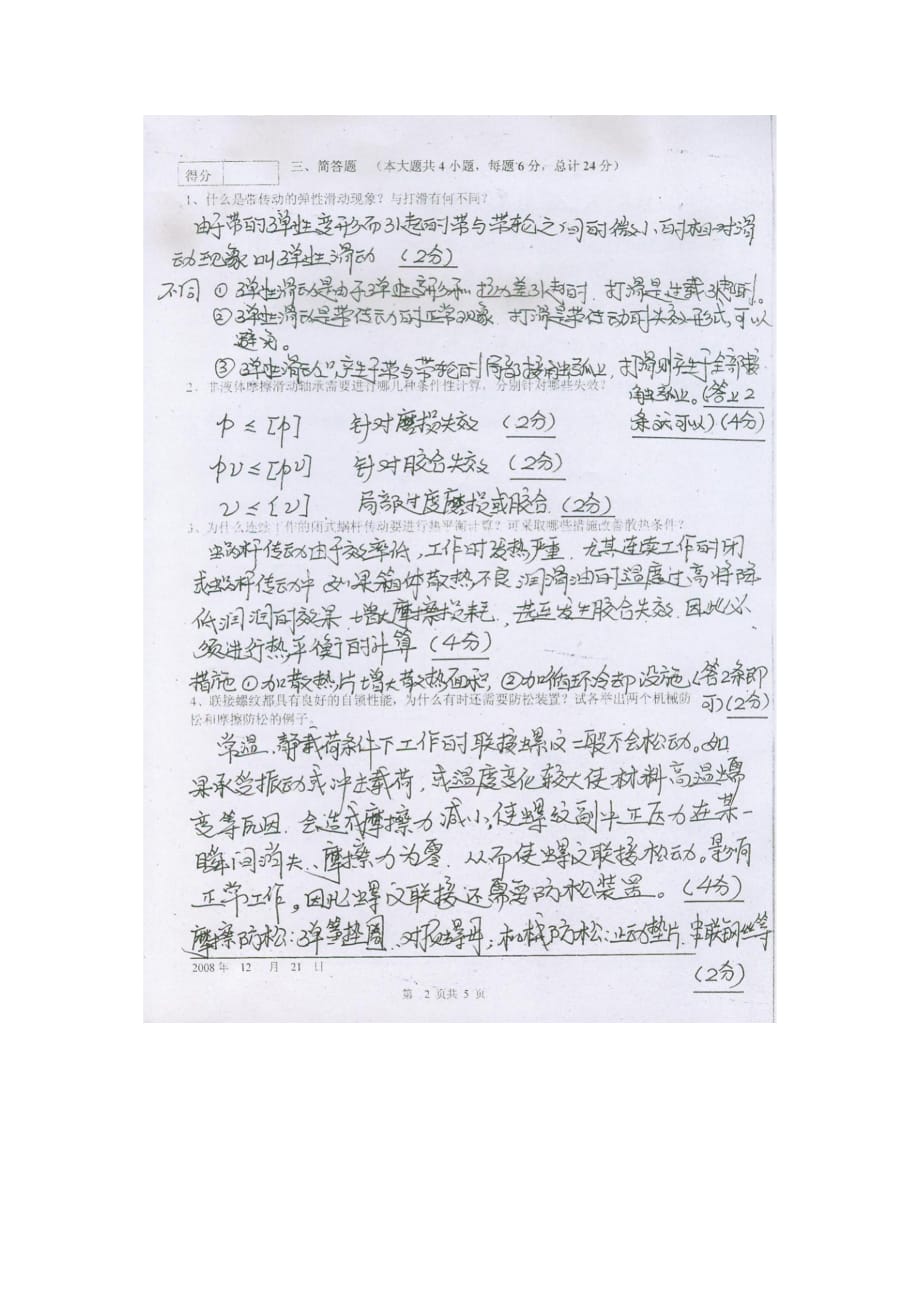 得分
三、简答题 （本大题共4小题，每题6分，总计24分）
1、什么是带传动的弹性滑动现象？与打滑有何不同？
由于带的弹性变形而引起的带与带轮之间的微小的相对滑
动现象叫弹性滑动 (2分)
不同 ① 弹性滑动是由于弹性变形和拉力差引起的．打滑是过载引起的。
② 弹性滑动是带传动的正常现象．打滑是带传动的失效形式，可以
避免。
③ 弹性滑动只产生于带与带轮的局部接触弧上，打滑则产生于全部接
触弧上。(答上2
条就可以) (4分)
2、非液体摩擦滑动轴承需要进行哪几种条件性计算，分别针对哪些失效？
p ≤ [p] 针对磨损失效 (2分)
pv ≤ [pv] 针对胶合失效 (2分)
v ≤ [v] 局部过度磨损或胶合．(2分)
3、为什么连续工作的闭式蜗杆传动要进行热平衡计算？可采取哪些措施改善散热条件？
蜗杆传动由于效率低，工作时发热严重．尤其连续工作的闭
式蜗杆传动中 如果箱体散热不良 润滑油的温度过高将降
低润滑的效果．增大摩擦损耗．甚至发生胶合失效．因此必
须进行热平衡的计算 (4分)
措施 ① 加散热片增大散热面积，② 加循环冷却设施 (答2条即
可) (2分)
4、联接螺纹都具有良好的自锁性能，为什么有时还需要防松装置？试各举出两个机械防
松和摩擦防松的例子。
常温、静载荷条件下工作的联接螺纹一般不会松动。如
果承受振动或冲击载荷，或温度变化较大使材料高温蠕
变等原因．会造成摩擦力减小，使螺纹副中正压力在某一
瞬间消失、摩擦力为零．从而使螺纹联接松动。影响
正常工作。因此螺纹联接还需要防松装置。(4分)
摩擦防松：弹簧垫圈、对顶螺母；机械防松：止动垫片．串联钢丝等
(2分)
2008 年 12 月 21 日
第 2 页共 5 页